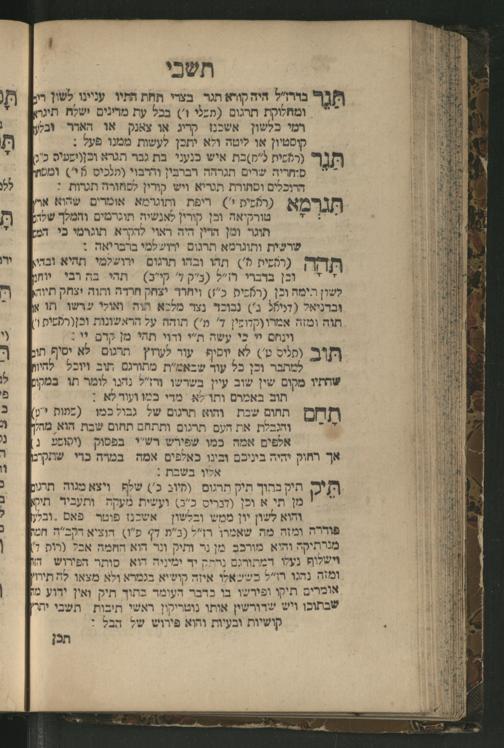 תשבי
תַּגָר בדרז״ל היה קורא תגר בצרי תחת התיו עניינו לשון ריב
ומחלוקת תרגום (משלי ו׳) בכל עת מדינים ישלח תיגרא
רמי בלשון אשכנז קריג או צאנק או האדר ובלעז
קוסטיון או ליטה ולא יתכן לעשות ממנו פעל :
תַּגָר (ראשית ל״ח) בת איש כנעני בת גבר תגרא וכן (ישעיה כ״ג)
סחריה שרים תגרהה רברבין והרבוי (מלכים א י׳) ומסחר
הרוכלים וסחורת תגריא ויש קורין לסחורה תגרות :
תּוֹגַרְמָא (ראשית י׳) ריפת ותוגרמא אומרים שהוא ארץ
טורקיאה וכן קורין לאנשיה תוגרמים והמלך שלהם
תוגר ומן הדין היה ראוי להקרא תוגרמי כי המם
שרשית ותוגרמא תרגום ירושלמי ברבריאה :
תָּהָה (ראשית א׳) תהו ובהו תרגום ירושלמי תהיא ובהיא
וכן בדברי רז״ל (ב״ק ד׳ קי״ב) תהי בה רבי יוחנן
לשון תימה וכן (ראשית כ״ז) ויחרד יצחק חרדה ותוה יצחק תיוהא
ובדניאל (דניאל ג׳) נבוכד נצר מלכא תוה ואולי שרשו תו או
תוה ומזה אמרו (קדושין ד׳ מ׳) תוהה על הראשונות וכן (ראשית ו׳)
וינחם יי׳ כי עשה ת״י ודוי תהי מן קדם יי׳ :
תּוּב (תלים ט׳) לא יוסיף עוד לערוץ תרגום לא יסיף תוב
למתבר וכן כל עוד שבאמ״ת מתורגם תוב ויוכל להיות
שהתיו מקום שין שוב עיין בשרשו ורז״ל נהגו לומר תו במקום
תוב באמרם ותו לא מדי כמו ועוד לא :
תָּחַם תחום שבת והוא תרגום של גבול כמו (שמות י״ט)
והגבלת את העם תרגום ותתחם תחום שבת הוא מהלך
אלפים אמה כמו שפירש רש״י בפסוק (יהושע ג)
אך רחוק יהיה ביניכם ובינו כאלפים אמה במדה כדי שתקרבו
אליו בשבת :
תִּיק תיק בתוך תיק תרגום (איוב כ׳) שלף ויצא מגוה תרגום
מן תי א וכן (דברים כ״ב) ועשית מעקה ותעביד תיקא
והוא לשון יון ממש ובלשון אשכנז פוטר פאס ובלעז
פודרה ומזה מה שאמרו רז״ל (ב״מ דף פ״ו) הוציא הקב״ה חמה
מנרתיקה והוא מורכב מן נר ותיק ונר הוא החמה אבל (רות ד׳)
וישלוף נעלו דמתורגם נרתק יד ימיניה הוא סותר הפירוש הזה
ומזה נהגו רז״ל כששאלו איזה קושיא בגמרא ולא מצאו לה תירוץ
אומרים תיקו ופירשו בו כדבר העומד בתוך תיק ואין ידוע מה
שבתוכו ויש שדורשין אותו נוטריקון ראשי תיבות תשבי יתרץ
קושיות ובעיות והוא פירוש של הבל :
תכן